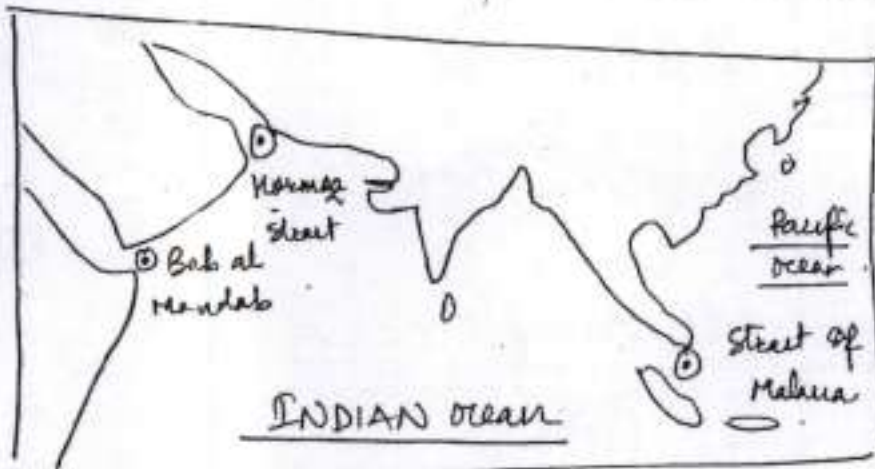 Hormoz
Strait
Bab al
Mandab
Pacific
Ocean
Strait of
Malacca
INDIAN Ocean